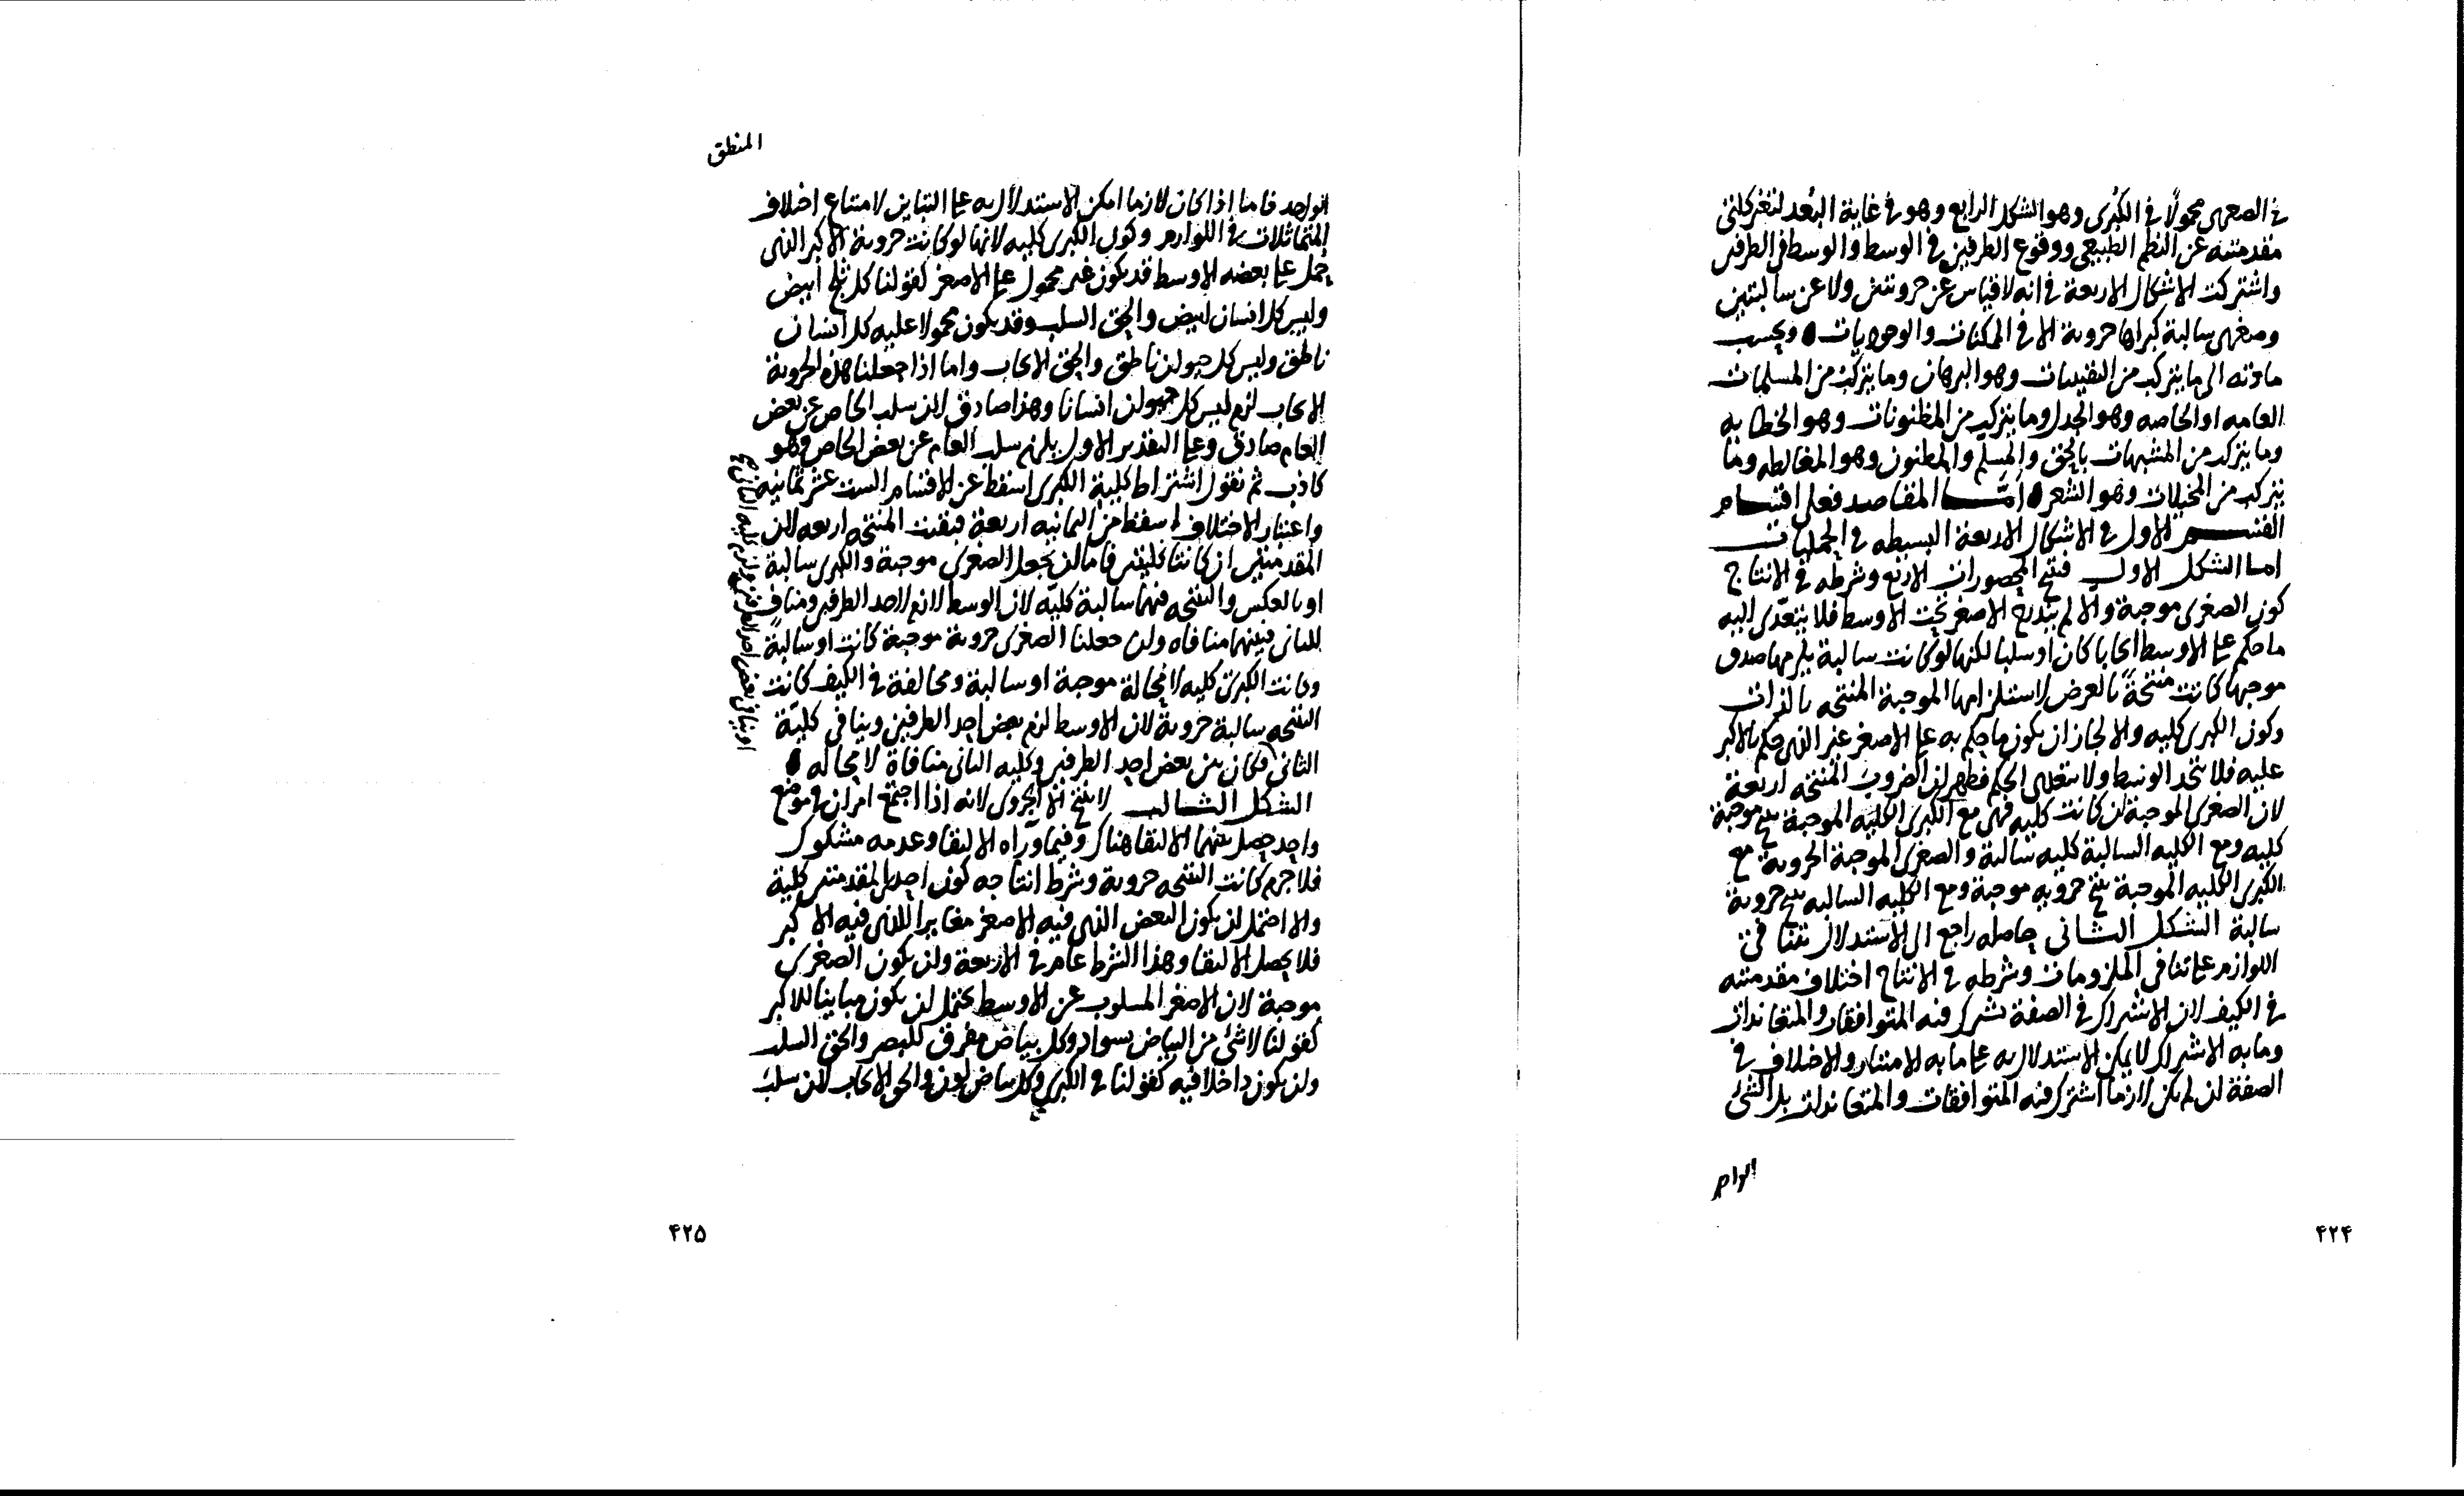 في الصغرى محمولا في الكبرى وهو الشكل الرابع وهو في غاية البعد لتغير كلتى
مقدمتيه عن النظم الطبيعى ووقوع الطرفين في الوسط والوسط في الطرفين
واشتركت الاشكال الاربعة في انه لا قياس عن جزويتين ولا عن سالبتين
وصغرى سالبة كبراها جزوية الا في الممكنات والوجوديات وبحسب
مادته الى ما يتركب من اليقينيات وهو البرهان وما يتركب من المسلمات
العامه او الخاصه وهو الجدل وما يتركب من المظنونات وهو الخطابه
وما يتركب من المشبهات بالحق والمسلم والمظنون وهو المغالطه وما
يتركب من المخيلات وهو الشعر امّا المقاصد فعلى اقسام
القسم الاول في الاشكال الاربعة البسيطه في الحمليات
اما الشكل الاول فينتج المحصورات الاربع وشرطه في الانتاج
كون الصغرى موجبة والا لم يندرج الاصغر تحت الاوسط فلا يتعدّى اليه
ما حكم على الاوسط ايجابا كان او سلبا لكنها لو كانت سالبة يلزمها صدق
موجبها كانت منتجة بالعرض لاستلزامها الموجبة المنتجه بالذات
وكون الكبرى كليه والا لجاز ان يكون ما حكم به على الاصغر غير الذى حكم بالاكبر
عليه فلا يتحد الوسط ولا يتعدى الحكم فظهر ان الضروب المنتجه اربعة
لان الصغرى الموجبة ان كانت كليه فهى مع الكبرى الكليه الموجبة ينتج موجبة
كليه ومع الكليه السالبة كليه سالبة والصغرى الموجبة الجزوية مع
الكبرى الكليه الموجبة ينتج جزويه موجبة ومع الكليه السالبه ينتج جزوية
سالبة الشكل الثانى حاصله راجع الى الاستدلال بتنافى
اللوازم على تنافى الملزومات وشرطه في الانتاج اختلاف مقدمتيه
في الكيف لان الاشتراك في الصفة تشترك فيه المتوافقات والمتعاندات
وما به الاشتراك لا يمكن الاستدلال به على ما به الامتياز والاختلاف في
الصفة ان لم يكن لازما اشترك فيه المتوافقات والمتعاندات بل الشئ
الواحد
۴۲۴
المنطق
الواحد فاما اذا كان لازما امكن الاستدلال به على التباين لامتناع اختلاف
المتماثلات في اللوازم وكون الكبرى كليه لانها لو كانت جزوية الاكبر الذى
حمل على بعضه الاوسط قد يكون غير محمول على الاصغر كقولنا كل ثلج ابيض
وليس كل انسان ابيض والحق السلب وقد يكون محمولا عليه كل انسان
ناطق وليس كل حيوان ناطق والحق الايجاب واما اذا جعلنا هذه الجزوية
الايجاب لزم ليس كل حيوان انسانا وهذا صادق لان سلب الخاص عن بعض
العام صادق وعلى التقدير الاول يلزم سلب العام عن بعض الخاص وهو
كاذب ثم نقول اشتراط كلية الكبرى اسقط عن الاقسام الست عشر ثمانيه
واعتبار الاختلاف اسقط من الثمانيه اربعة فبقيت المنتجه اربعه لان
المقدمتين ان كانتا كليتين فاما ان يجعل الصغرى موجبة والكبرى سالبة
او بالعكس والنتيجه فيهما سالبة كليّه لان الوسط لازم لاحد الطرفين ومناف
للثانى فبينهما منافاه وان جعلنا الصغرى جزوية موجبة كانت او سالبة
وكانت الكبرى كليه لا محالة موجبة او سالبة ومخالفة في الكيف كانت
النتيجه سالبة جزوية لان الاوسط لزم بعض احد الطرفين وينافى كليّة
الثانى فكان بين بعض احد الطرفين وكليه الثانى منافاة لا محاله
الشكل الثالث لا ينتج الا الجزوى لانه اذا اجتمع امران في موضع
واحد حصل بينهما الالتقا هناك وفيما وراه الالتقا وعدمه مشكوك
فلا جرم كانت النتيجه جزوية وشرط انتاجه كون احدى المقدمتين كلية
والا احتمل ان يكون البعض الذى فيه الاصغر مغايرا للذى فيه الاكبر
فلا يحصل الالتقا وهذا الشرط عام في الاربعة وان يكون الصغرى
موجبة لان الاصغر المسلوب عن الاوسط يحتمل ان يكون مباينا للاكبر
كقولنا لا شئ من البياض بسواد وكل بياض مفرق للبصر والحق السلب
وان يكون داخلا فيه كقولنا في الكبرى وكل بياض لون والحق الايجاب لان سلب
او ينافى بعض احد الطرفين ولزم كلية الثانى
۴۲۵